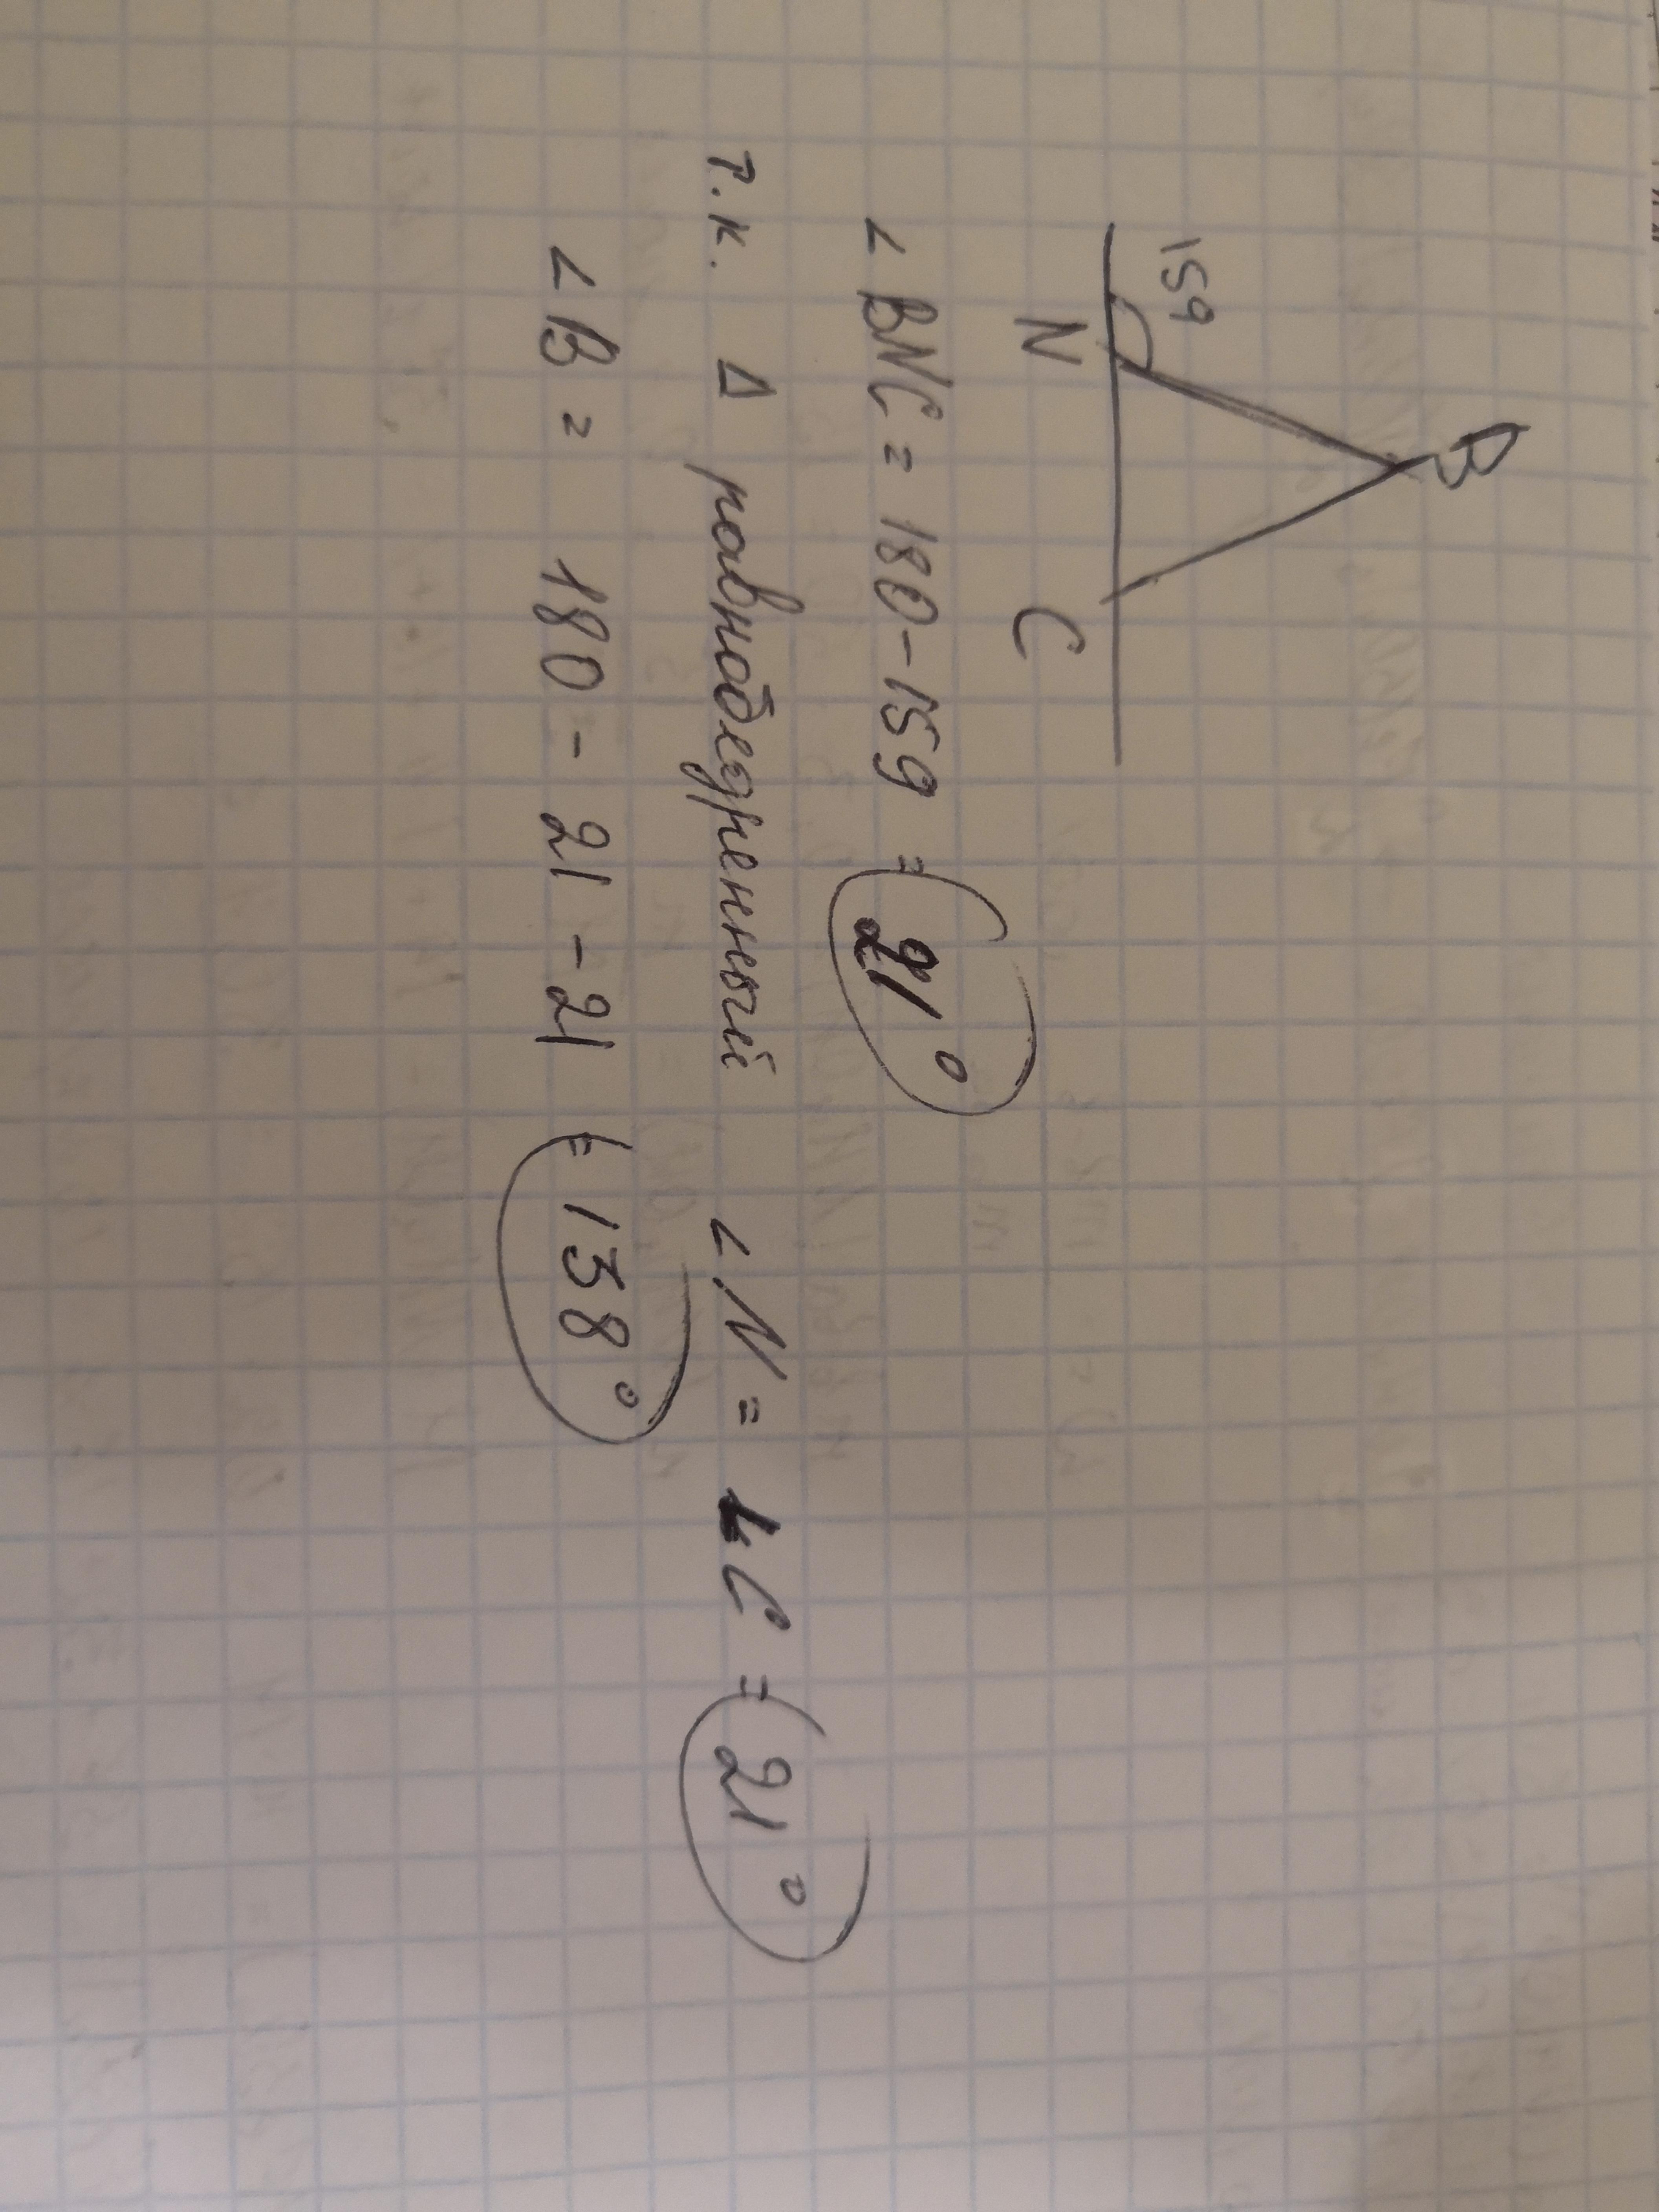 B
159
N C
∠BNC = 180-159 = 21°
т.к. Δ равнобедренный ∠N = ∠C = 21°
∠B = 180 - 21 - 21 = 138°